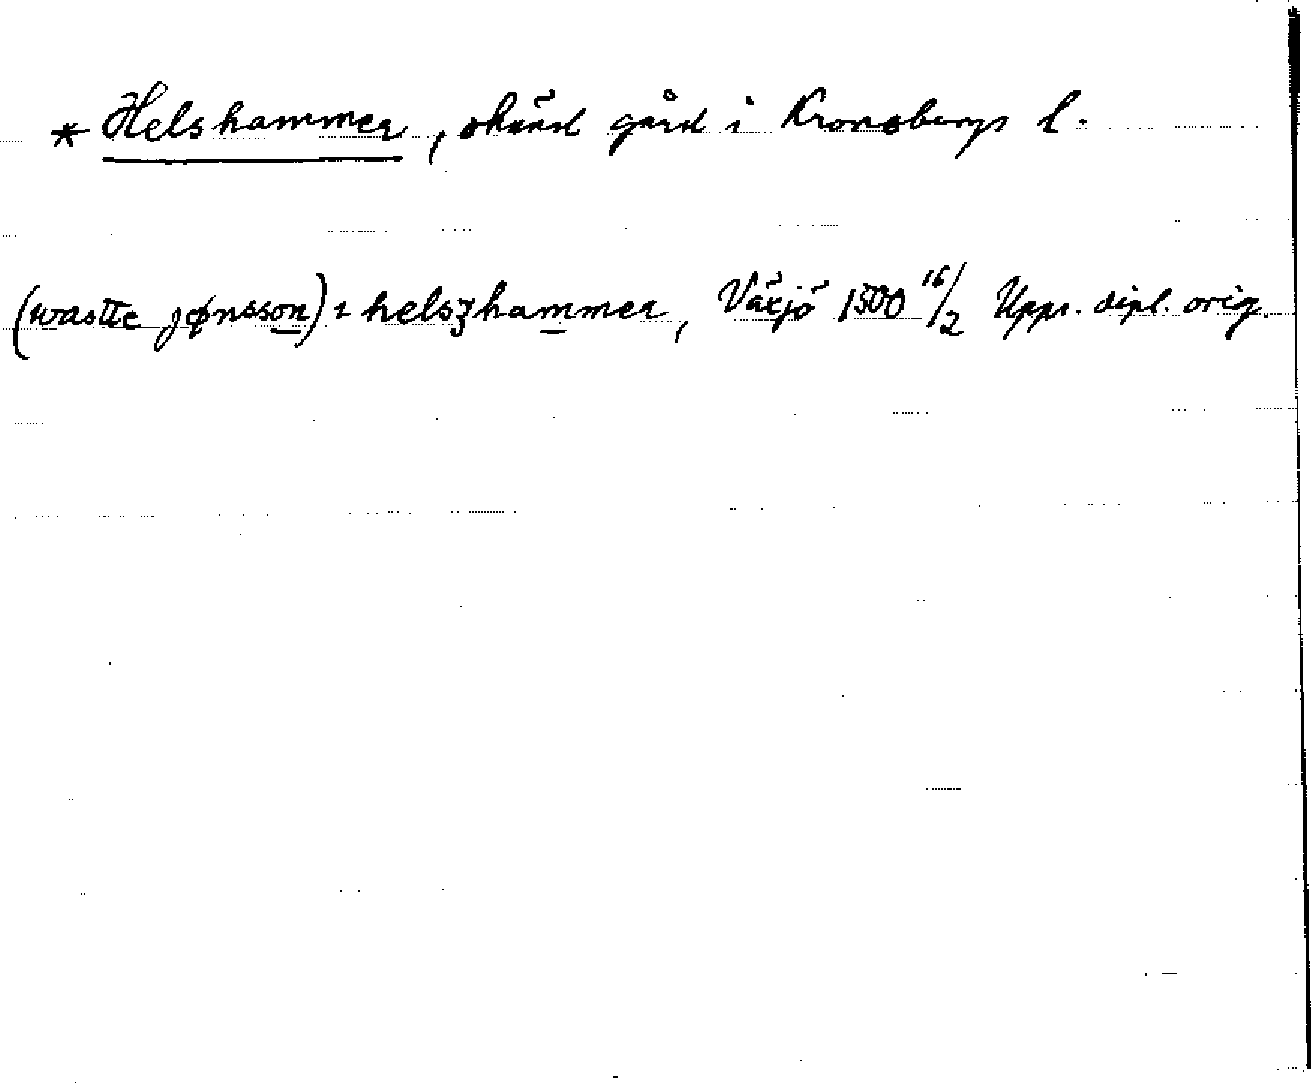 * Helshammer, okänd gård i Kronobergs l.
(wastte jønsson) i helsʒhammer, Växjö 1500 16/2 Upps. dipl. orig.